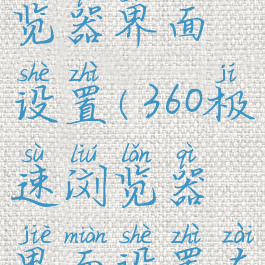 览器界面
shè zhì jí
设置(360极
sù liú lǎn qì
速浏览器
jiè miàn shè zhì zài
界面设置在